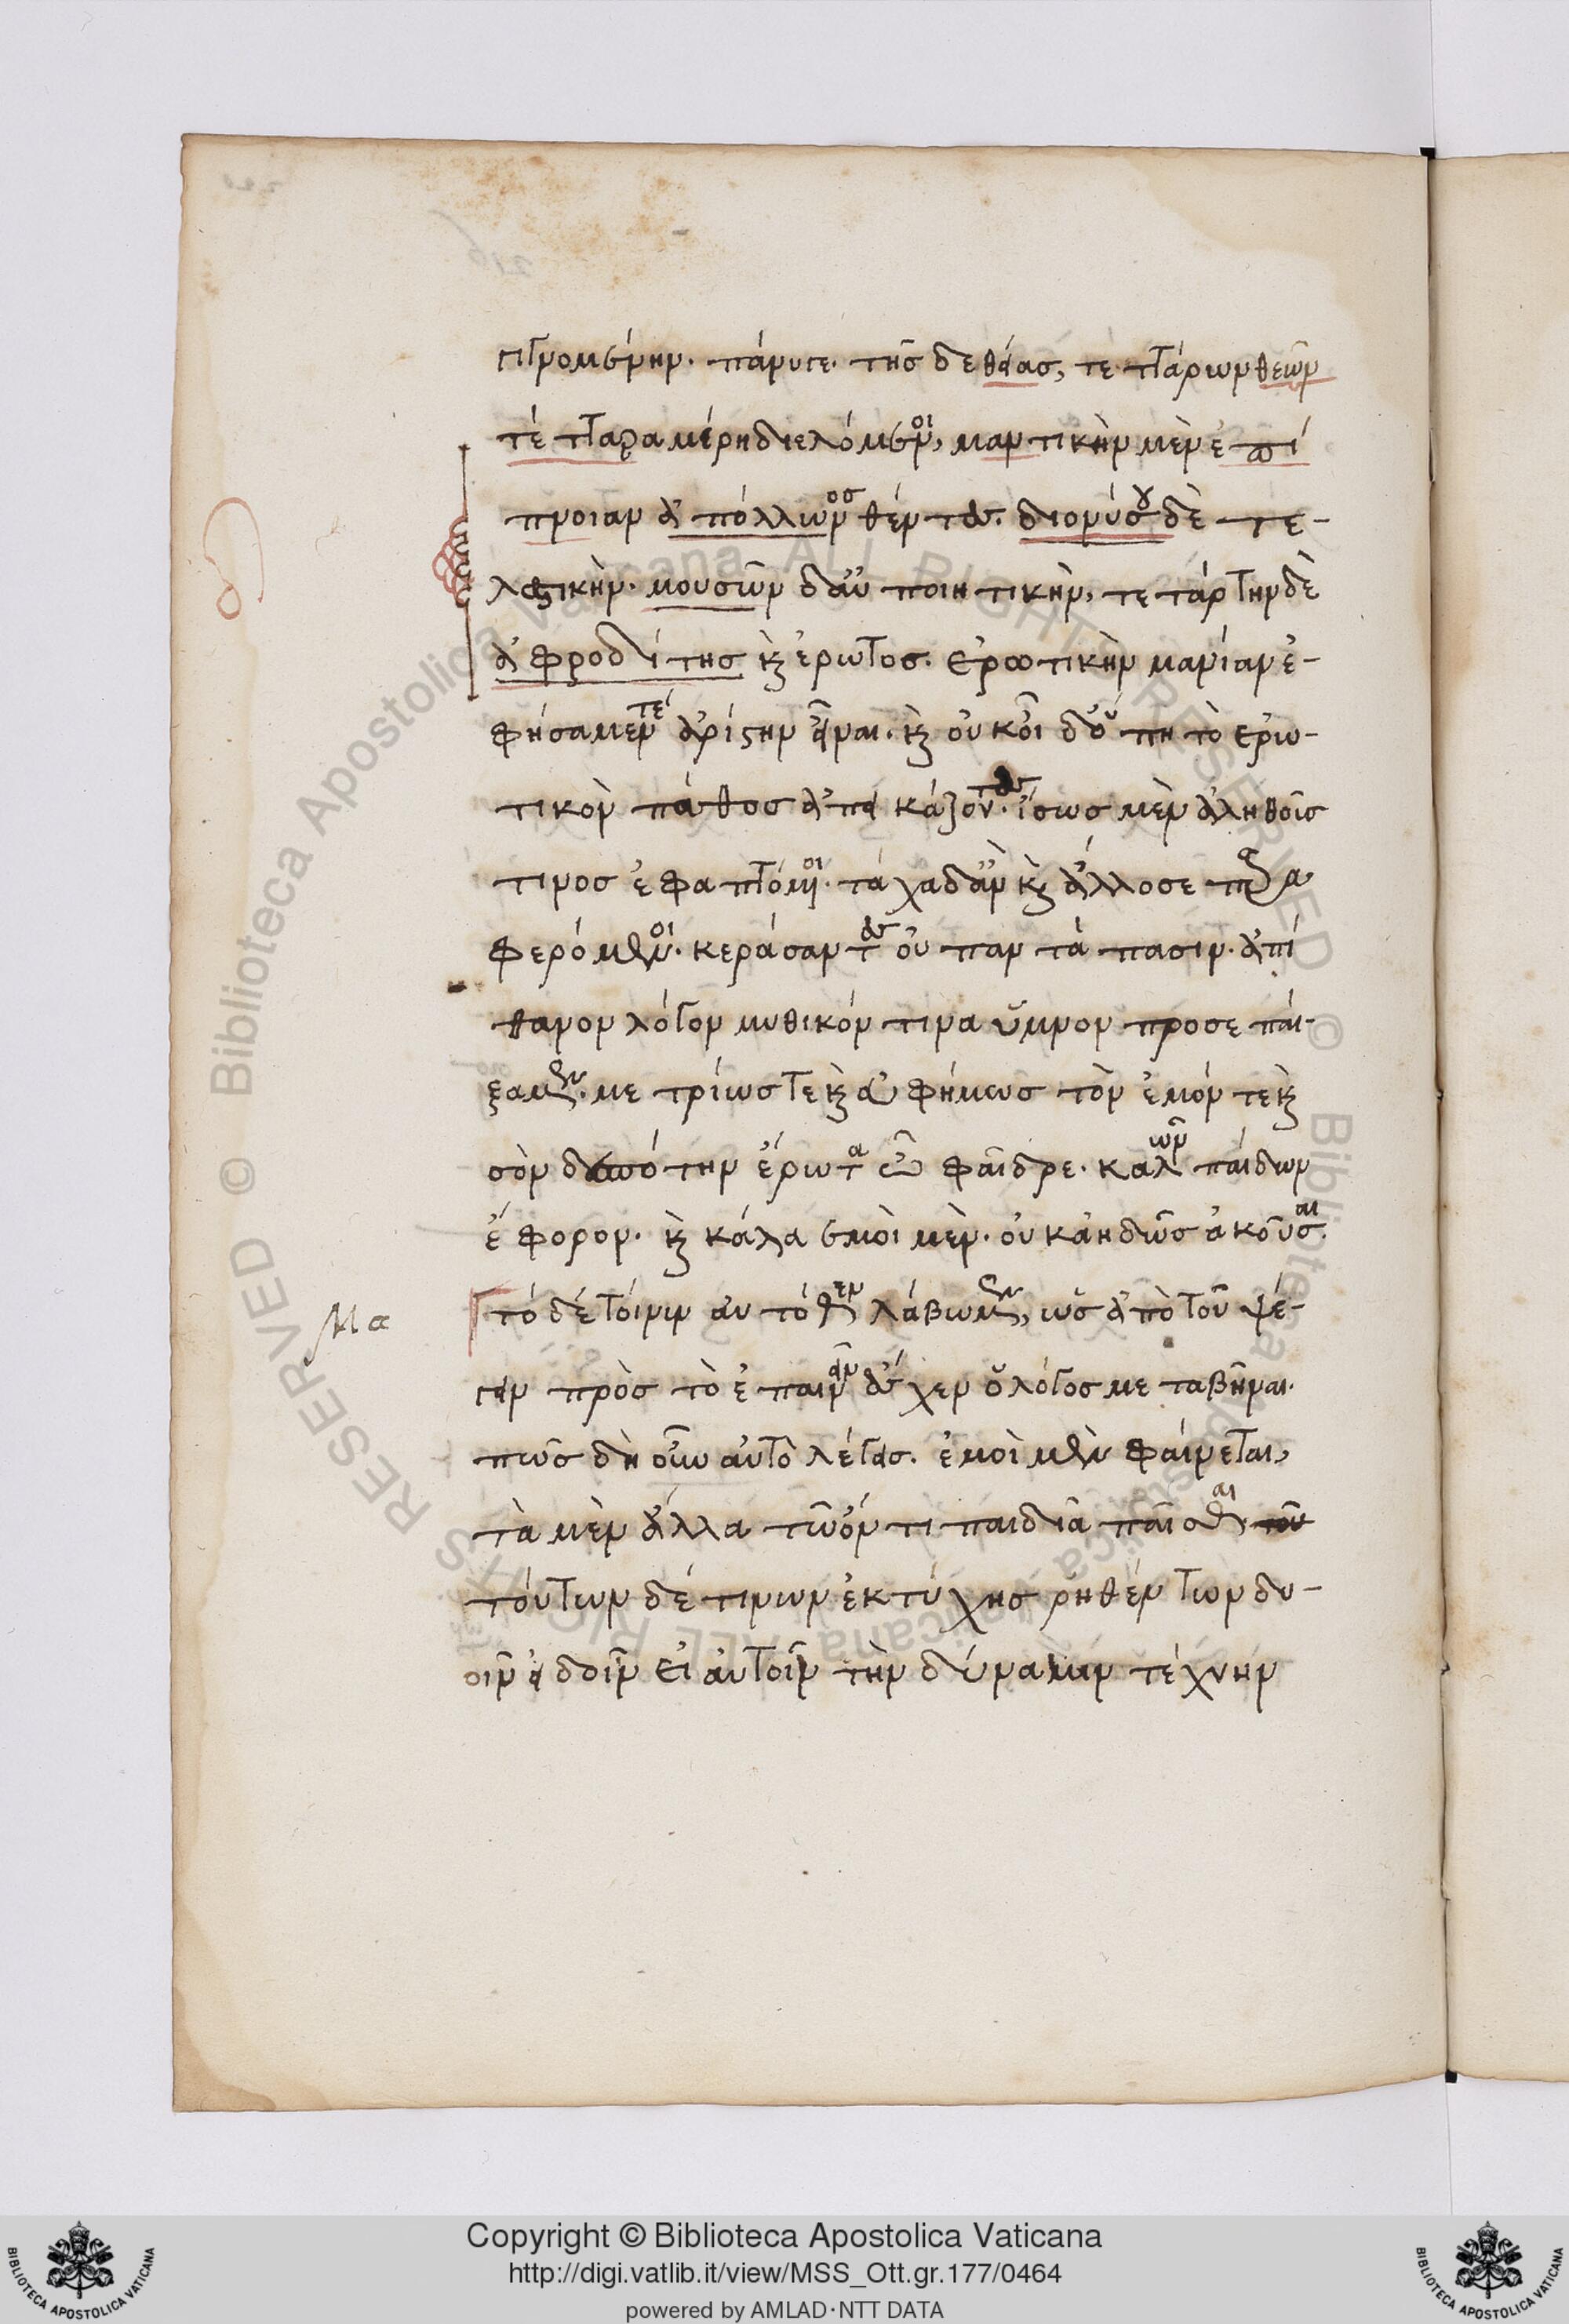 γιγνομένην. πάνυ γε. τῆς δὲ θείας, τεττάρων θεῶν
τέτταρα μέρη διελόμενοι, μαντικὴν μὲν ἐπί
πνοιαν ἀπόλλωνος θέντες. διονύσου δὲ τε-
λεστικὴν. μουσῶν δ' αὖ ποιητικὴν, τετάρτην δὲ
ἀφροδίτης κ ἔρωτος. ἐρωτικὴν μανίαν ἐ-
φήσαμέν τε ἀρίστην εἶναι. κ οὐκ οἶδ' ὅπη τὸ ἐρω-
τικὸν πάθος ἀπεικάζοντες. ἴσως μὲν ἀληθοῦς
τινος ἐφαπτόμενοι. τάχα δ' ἂν κ ἄλλοσε παρα
φερόμενοι. κεράσαντες οὐ παντάπασιν. ἀπί
θανον λόγον μυθικόν τινα ὕμνον προσεπαί-
ξαμεν. μετρίως τε κ εὐφήμως τὸν ἐμόν τε κ
σὸν δεσπότην ἔρωτα ὦ φαῖδρε. καλῶν παίδων
ἔφορον. κ μάλα ἔμοὶ μὲν. οὐκ ἀηδῶς ἀκοῦσαι.
τόδε τοίνυν αὐτόθεν λάβωμεν, ὡς ἀπὸ τοῦ ψέ-
γειν πρὸς τὸ ἐπαινεῖν ἔσχεν ὁ λόγος μεταβῆναι.
πῶς δὴ οὖν αὐτὸ λέγεις. ἐμοὶ μὲν φαίνεται,
Μα
τὰ μὲν ἄλλα τῷ ὄντι παιδιᾷ πεπαῖσθαι
τούτων δέ τινων ἐκ τύχης ῥηθέντων δυ-
οῖν εἰδοῖν εἰ αὐτοῖν τὴν δύναμιν τέχνην
Copyright © Biblioteca Apostolica Vaticana
http://digi.vatlib.it/view/MSS_Ott.gr.177/0464
powered by AMLAD·NTT DATA